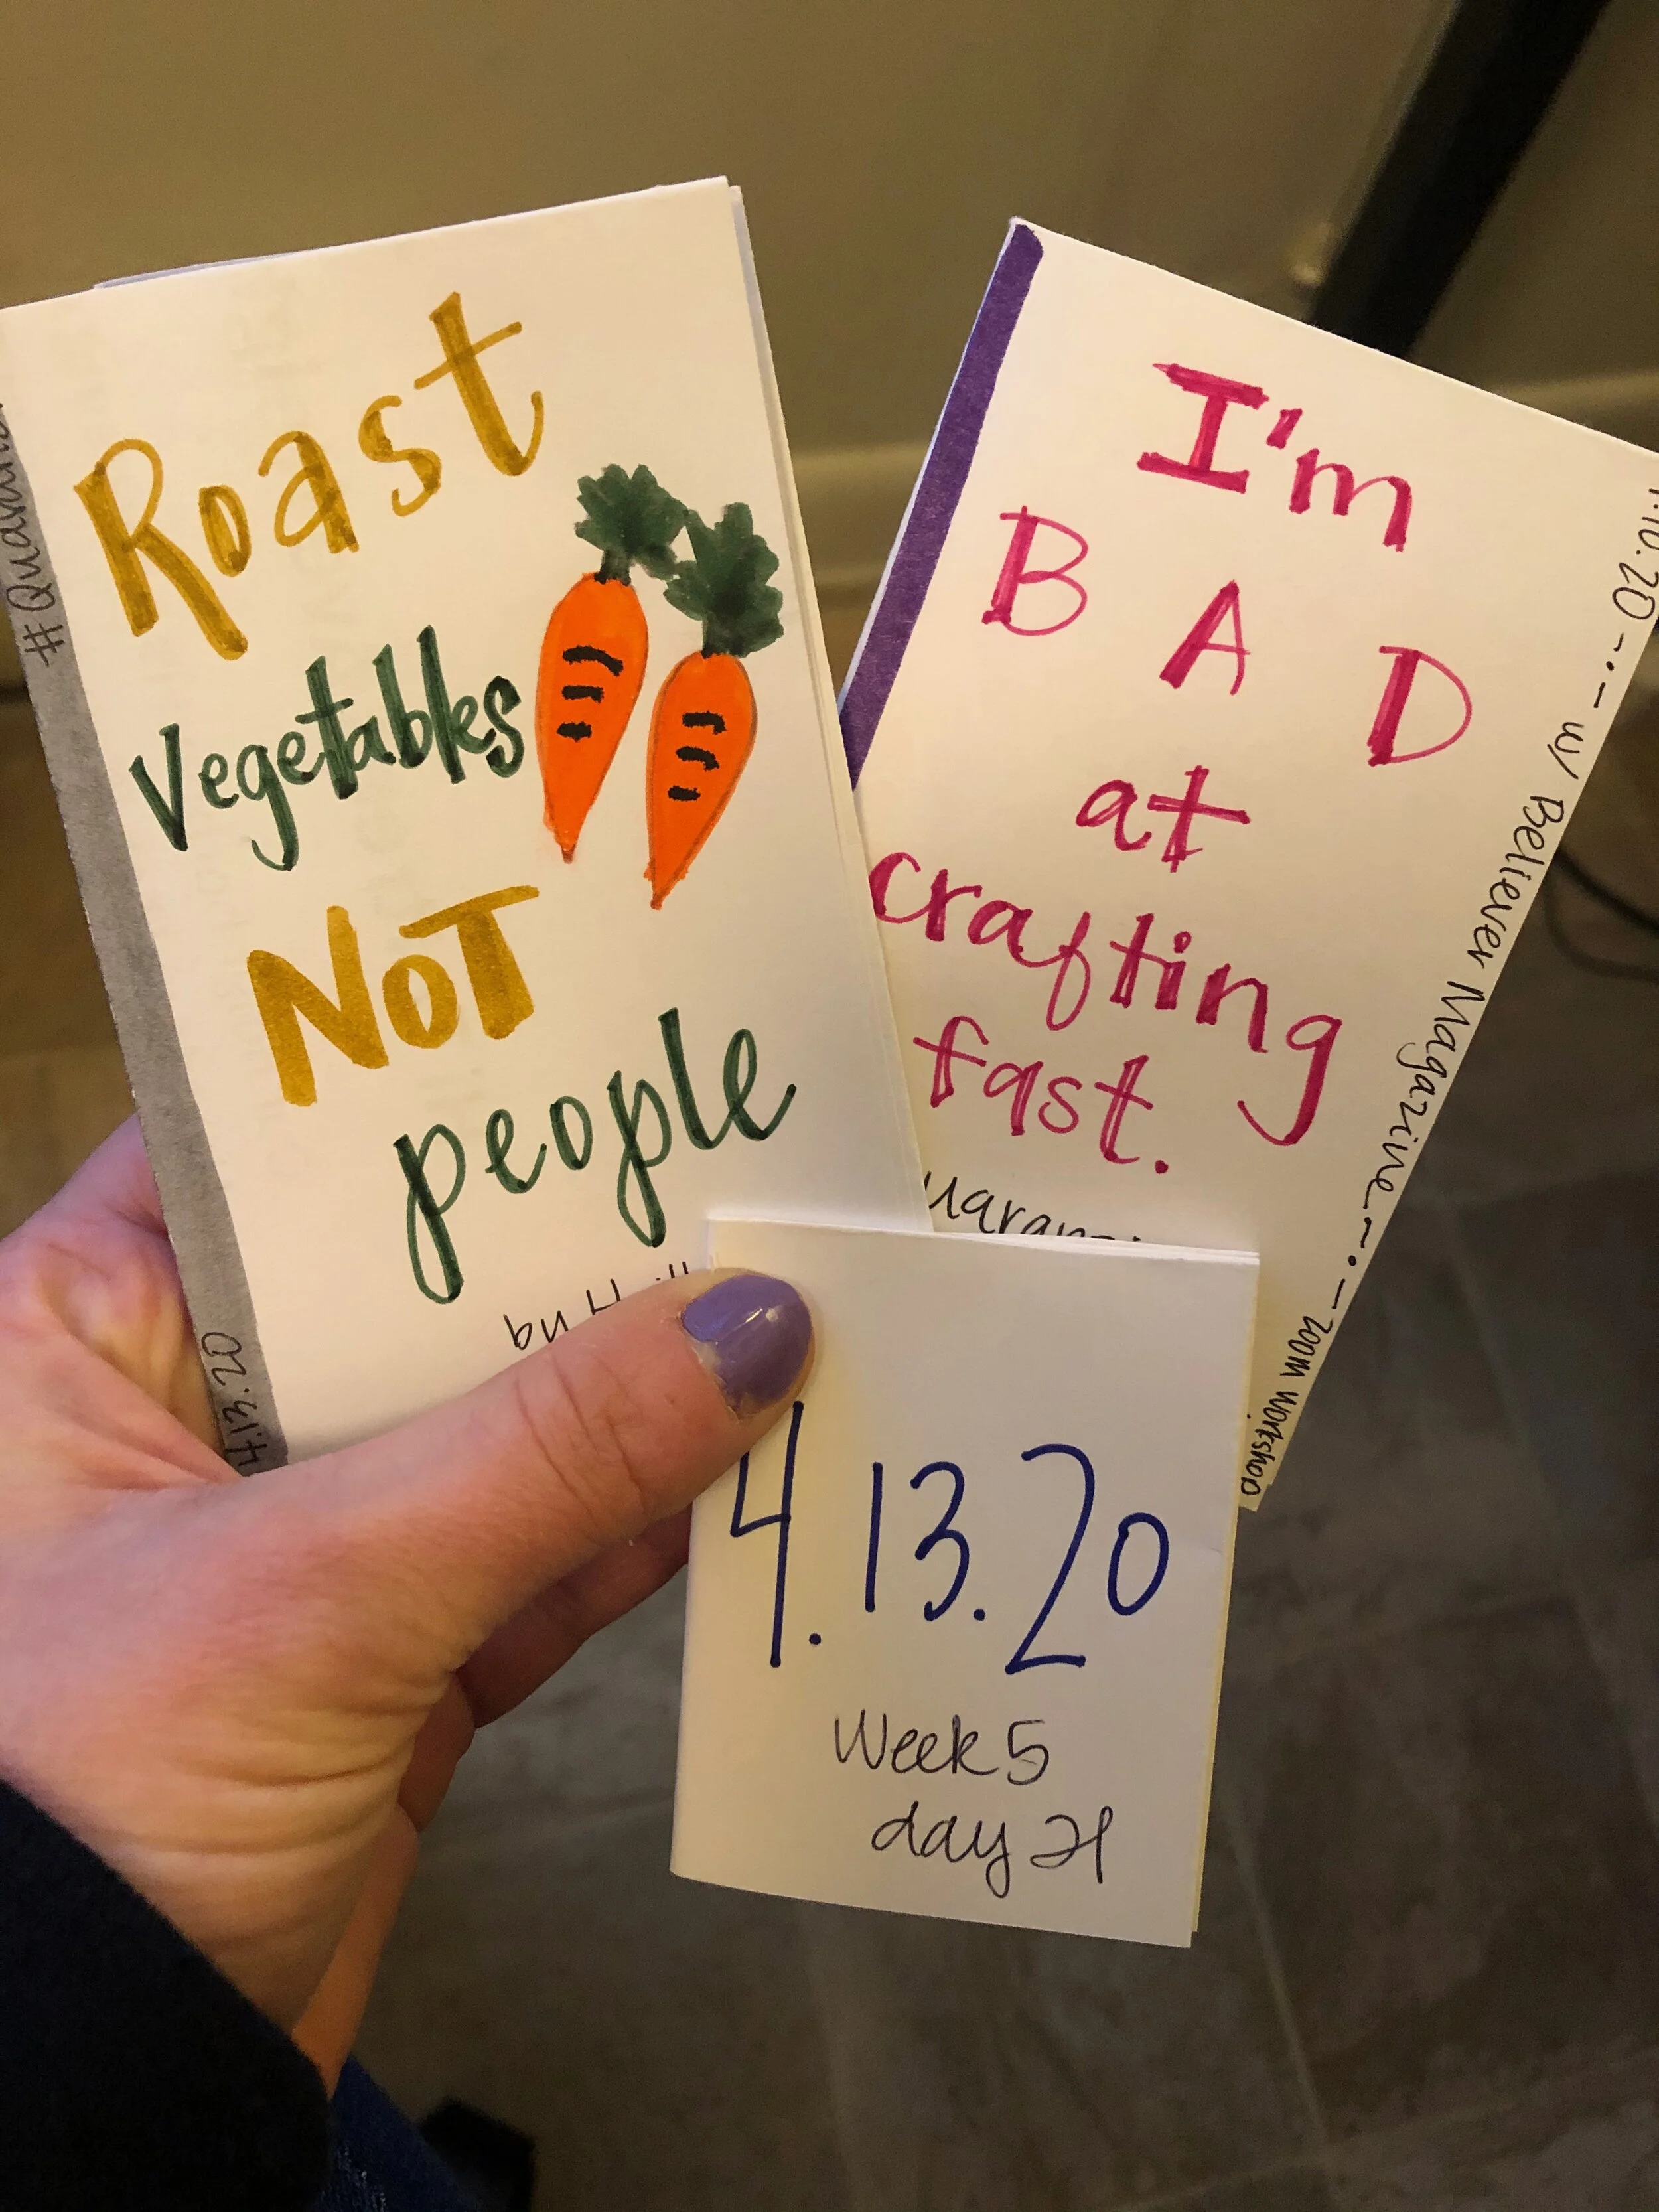 Roast
Vegetables
NOT
people
4.13.20
I'm
BAD
at
crafting
fast.
.10.20 -·- w/ Believer Magazine -·- zoom workshop
4.13.20
Week 5
day 21